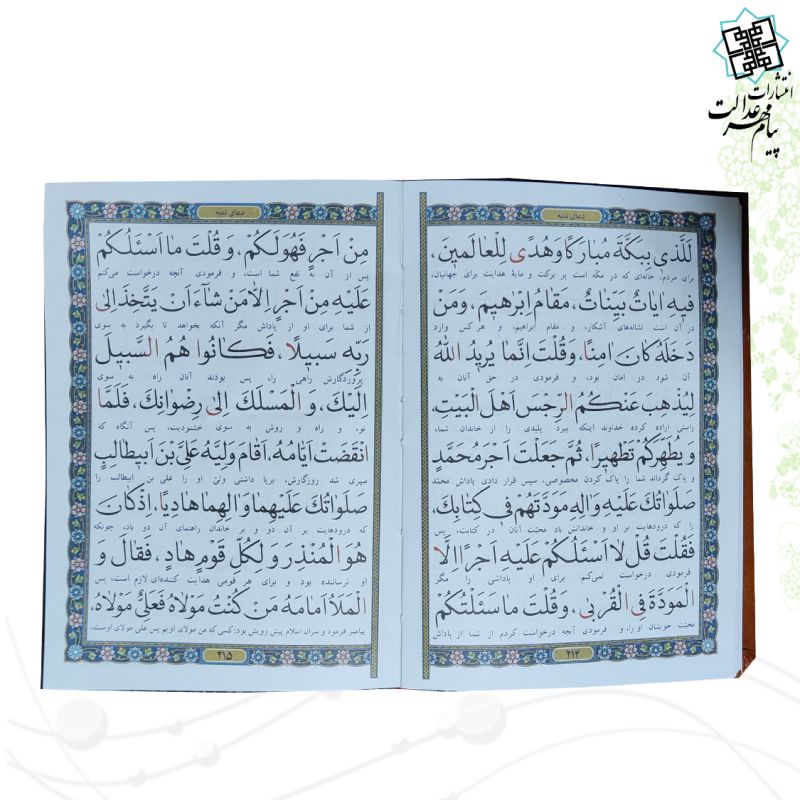 انتشارات
پیام مهر عدالت
دعای ندبه
لَلَّذی بِبَکَّةَ مُبارَکًا وَ هُدًی لِلْعالَمینَ،
برای مردم، خانه‌ای که در مکّه است پر برکت و مایهٔ هدایت برای جهانیان،
فیهِ ایاتٌ بَیِّناتٌ، مَقامُ اِبْرهیمَ، وَمَنْ
در آن است نشانه‌های آشکار، و مقام ابراهیم، و هر کس وارد
دَخَلَهُ کانَ امِنًا، وَ قُلْتَ اِنَّما یُریدُ اللهُ
آن شود در امان بود، و فرمودی در حق آنان به
لِیُذْهِبَ عَنْکُمُ الرِّجْسَ اَهْلَ الْبَیْتِ،
راستی اراده کرده خداوند اینکه ببرد پلیدی را از خاندان شما،
وَ یُطَهِّرَکُمْ تَطْهیرًا، ثُمَّ جَعَلْتَ اَجْرَ مُحَمَّدٍ
و پاک گرداند شما را پاک کردن مخصوصی، سپس قرار دادی پاداش محمّد
صَلَواتُکَ عَلَیْهِ وَ الِهِ مَوَدَّتَهُمْ فی کِتابِکَ،
را که درودهایت بر او و خاندانش باد محبّت آنان در کتابت، پس
فَقُلْتَ قُلْ لا اَسْئَلُکُمْ عَلَیْهِ اَجْرًا اِلَّا
فرمودی درخواست نمی‌کنم برای او پاداشی را مگر
الْمَوَدَّةَ فِی الْقُرْبی، وَ قُلْتَ ما سَئَلْتُکُمْ
محبّت خویشان او را، و فرمودی آنچه درخواست کردم از شما از پاداش
۲۱۴
دعای ندبه
مِنْ اَجْرٍ فَهُوَ لَکُمْ، وَ قُلْتَ ما اَسْئَلُکُمْ
پس از آن به نفع شما است، و فرمودی آنچه درخواست می‌کنم
عَلَیْهِ مِنْ اَجْرٍ اِلّا مَنْ شآءَ اَنْ یَتَّخِذَ اِلی
از شما برای او از پاداش مگر آنکه بخواهد تا بگیرد به سوی
رَبِّهِ سَبیلًا، فَکانُوا هُمُ السَّبیلَ
پروردگارش راهی را، پس بودند آنان راه به سوی
اِلَیْکَ، وَ الْمَسْلَکَ اِلی رِضْوانِکَ، فَلَمَّا
تو، و راه و روش به سوی خشنودیت، پس آنگاه که
انْقَضَتْ اَیّامُهُ، اَقامَ وَلِیَّهُ عَلِیَّ بْنَ اَبیطالِبٍ
سپری شد روزگارش، برپا داشتی ولیّ او را علی بن ابیطالب را
صَلَواتُکَ عَلَیْهِما وَ الِهِما هادِیًا، اِذْ کانَ
که درودهایت بر آن دو و بر خاندان راهنمای آن دو باد، چونکه
هُوَ الْمُنْذِرَ وَ لِکُلِّ قَوْمٍ هادٍ، فَقالَ وَ
او ترساننده بود و برای هر قومی هدایت کننده‌ای لازم است، پس
الْمَلَأُ اَمامَهُ مَنْ کُنْتُ مَوْلاهُ فَعَلِیٌّ مَوْلاهُ،
پیامبر فرمود و سران اسلام پیش رویش بود: کسی که من مولای اویم پس علی مولای اوست،
۲۱۵